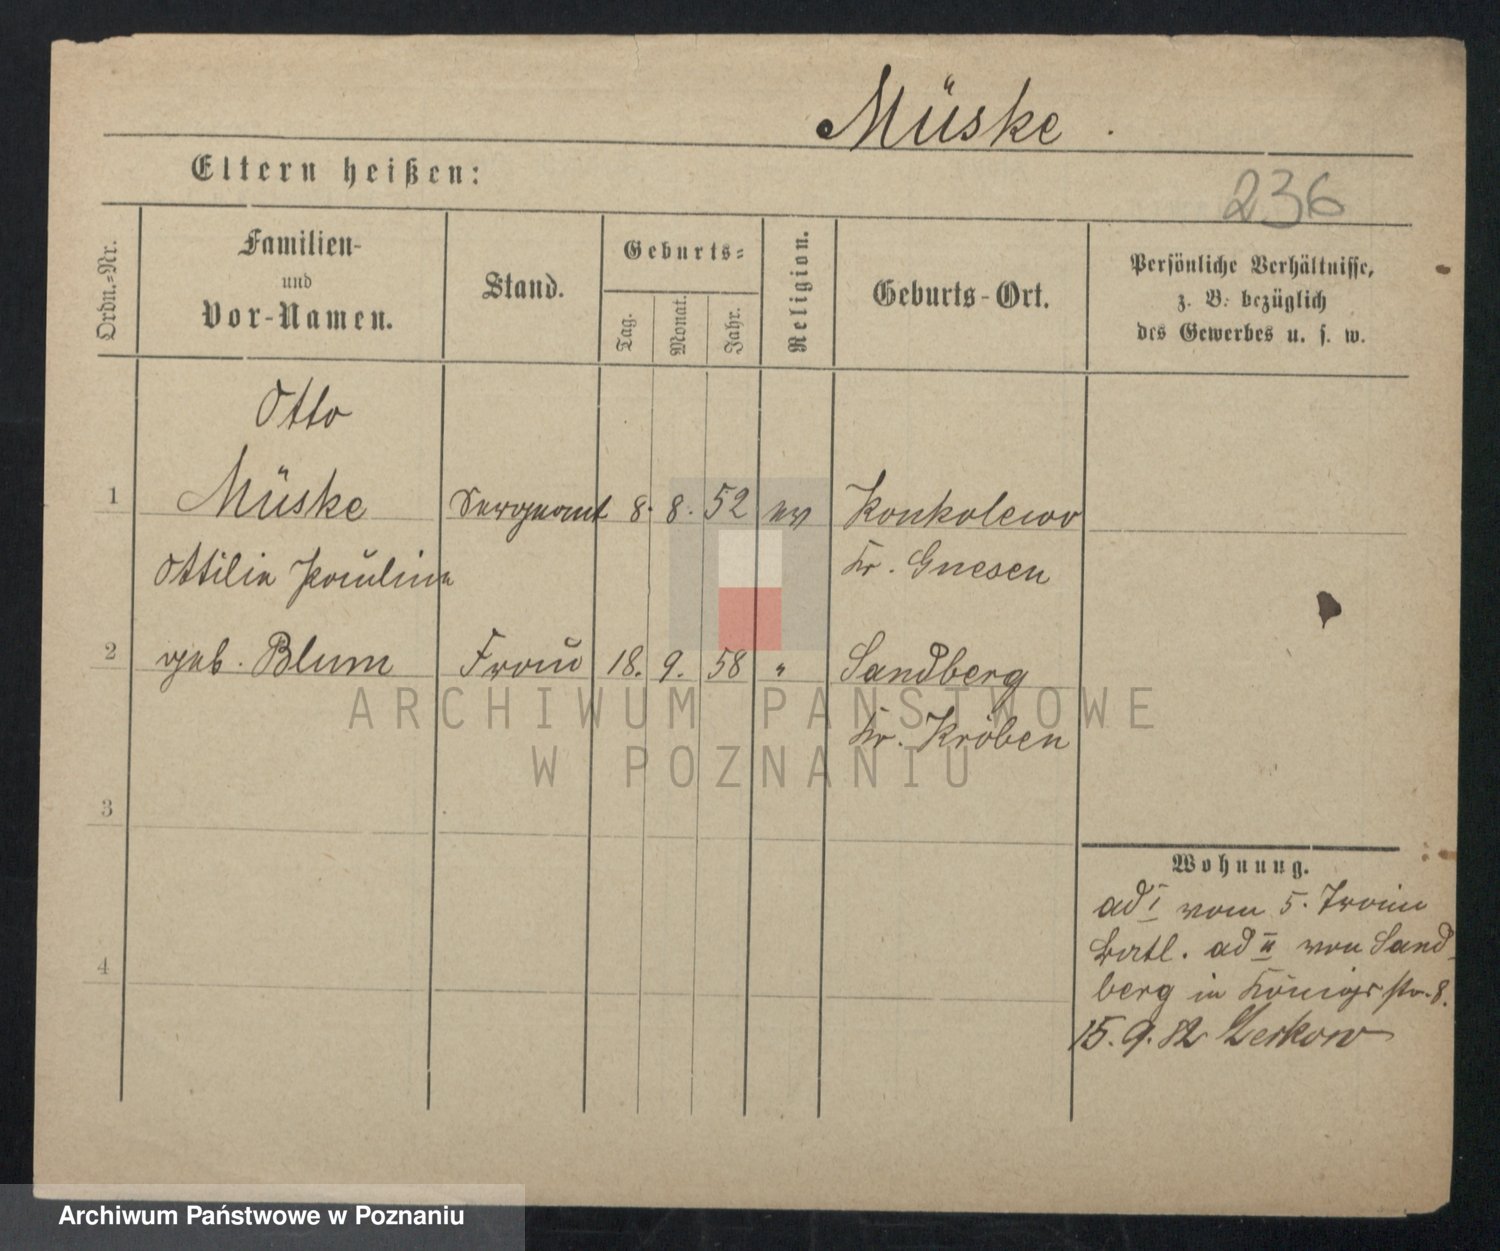 Müske.
Eltern heißen:
236
Ordn.=Nr.
Familien-
und
Vor-Namen.
Stand.
Geburts=
Tag.
Monat.
Jahr.
Religion.
Geburts-Ort.
Persönliche Verhältnisse,
z. B. bezüglich
des Gewerbes u. s. w.
Otto
1 Müske Sergeant 8. 8. 52 ev Konkolewo
Ottilie Pauline Kr. Gnesen
2 geb. Blum Frau 18. 9. 58 " Sandberg
Kr. Kröben
3
4
Wohnung.
ad I vom 5. Train
Batl. ad II von Sand
berg in Königsstr. 8.
15. 9. 82 Zerkow
ARCHIWUM PAŃSTWOWE
W POZNANIU
Archiwum Państwowe w Poznaniu